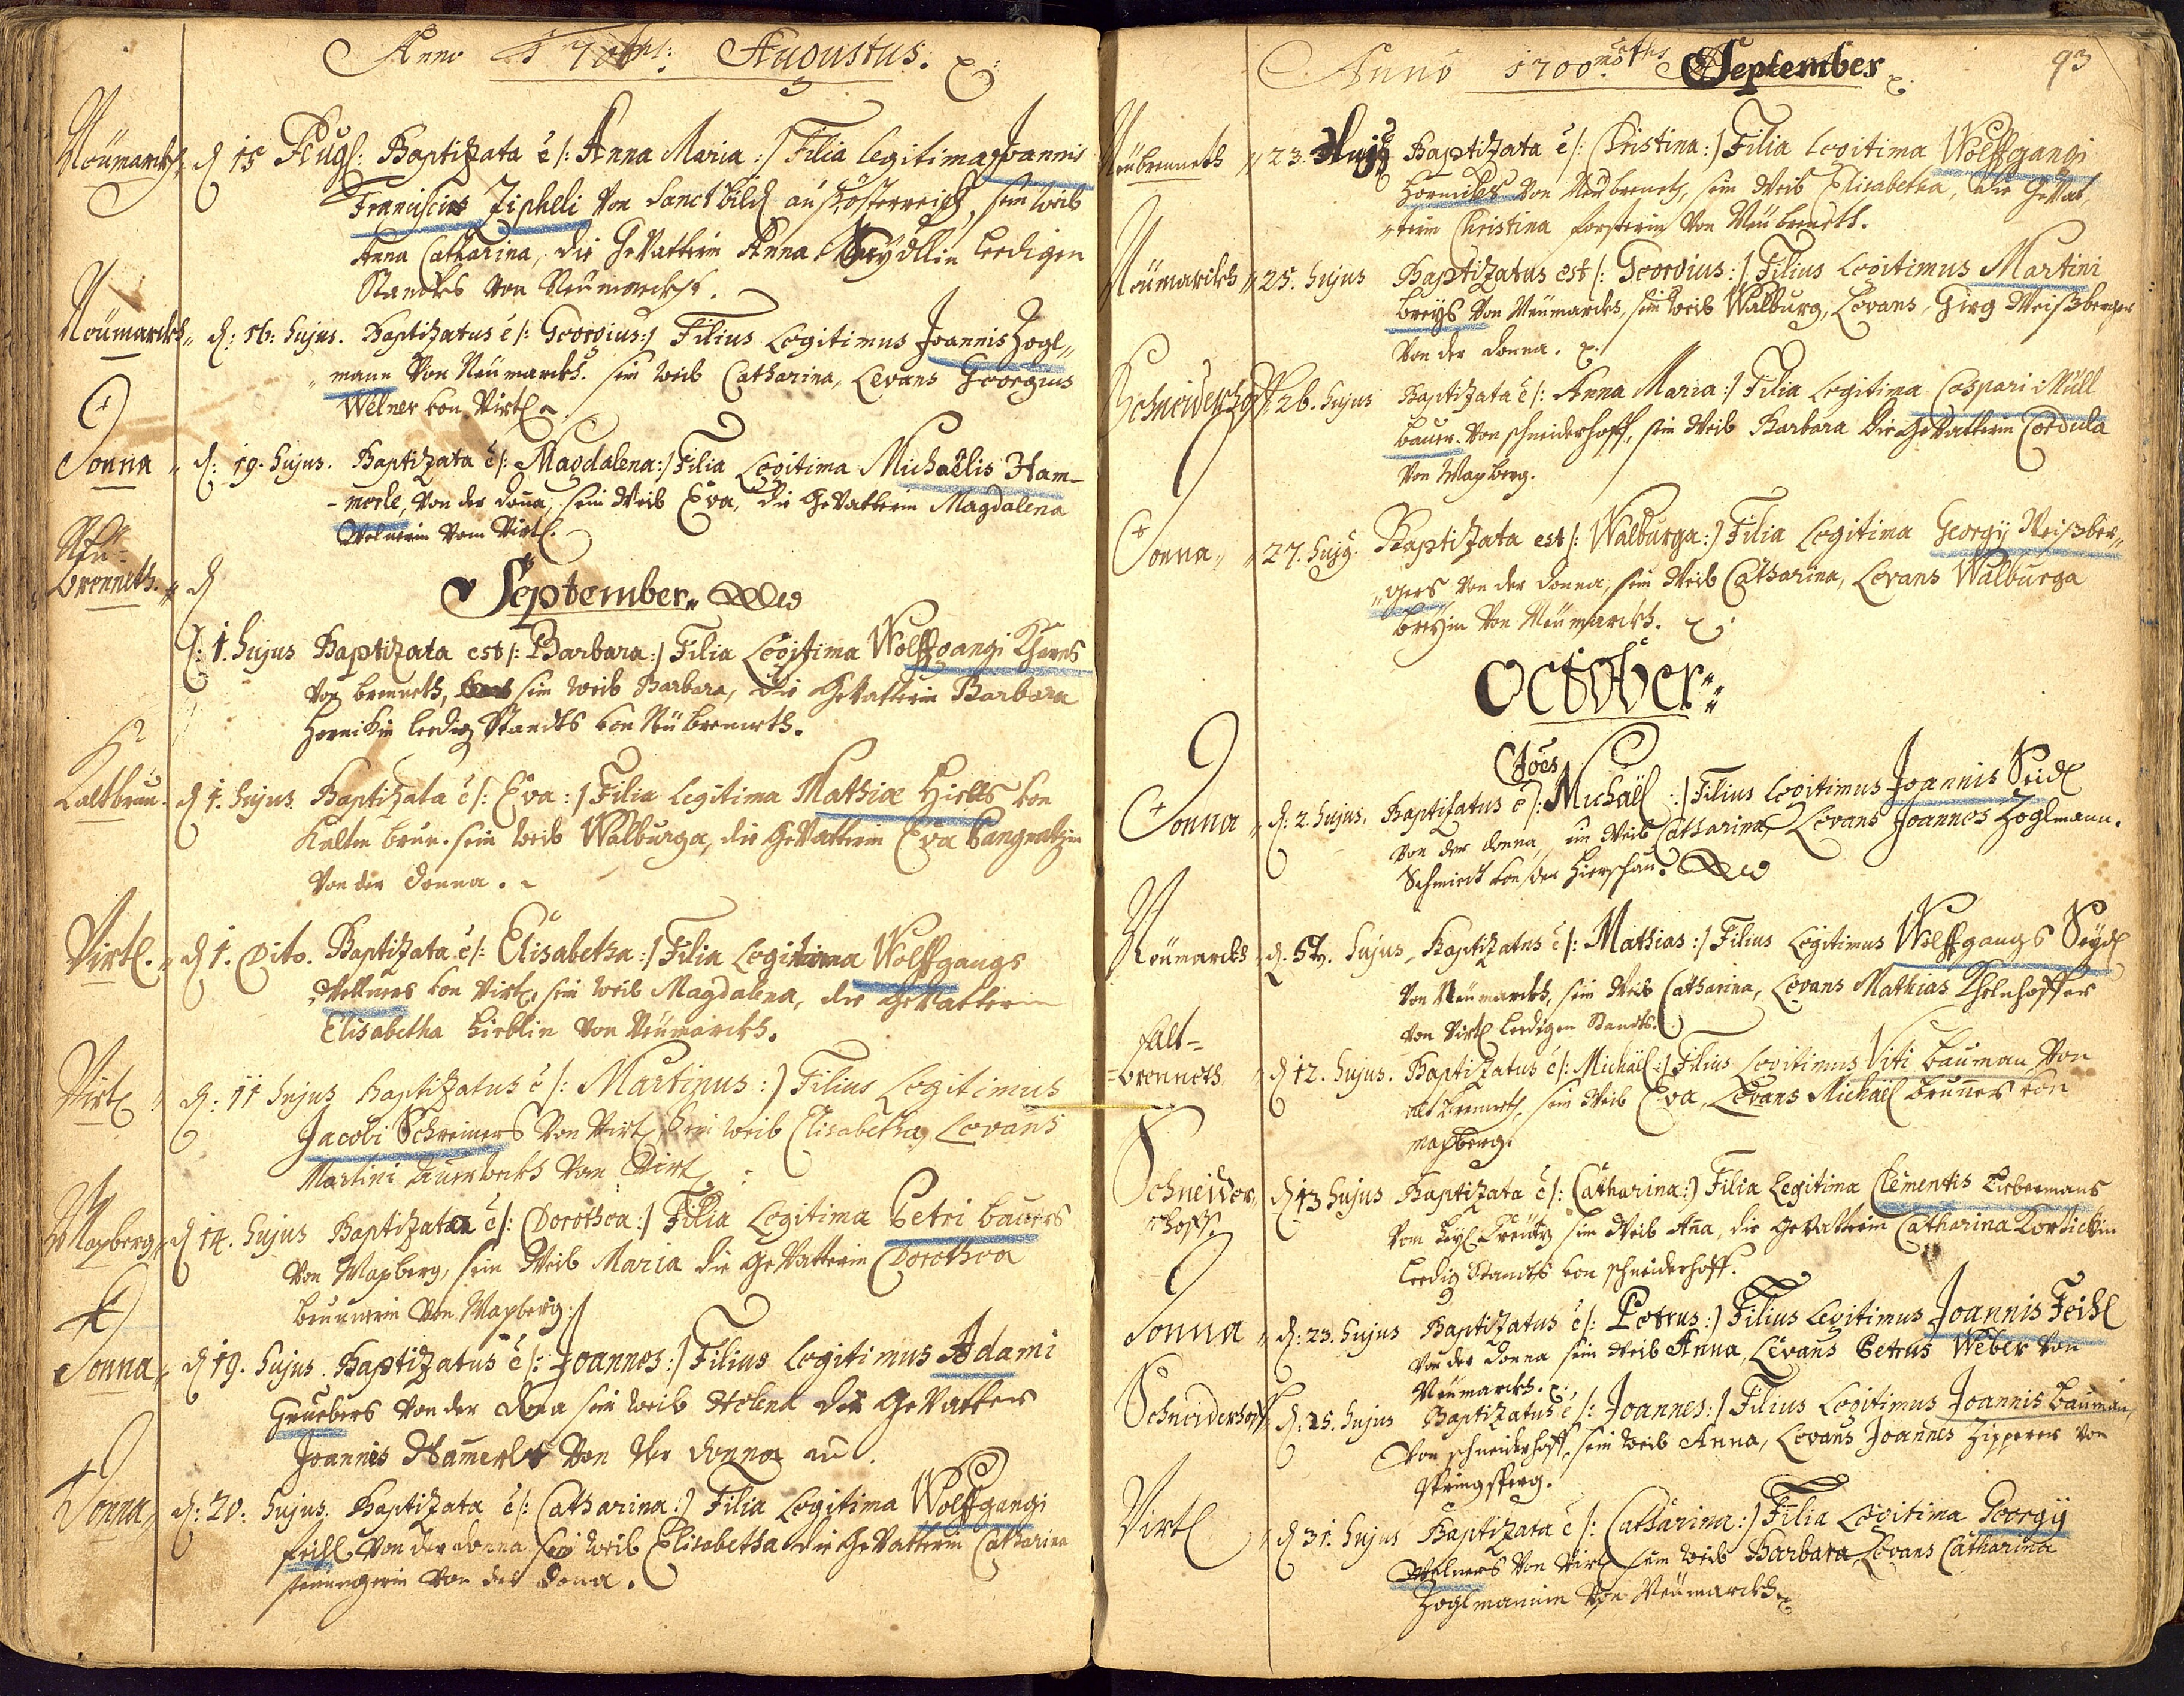 Anno 1700 Augustus.
Neumarckh d 15 Aug: Baptizata e /: Anna Maria :/ Filia legitima Joannis
Francisci Zipheli von Sanct auß österreich, sein weib
Anna Catharina, die Gevatterin Anna Seydllin leedigen
Standts von Neumarckh.
Neumarckh d: 16. hujus. Baptizatus e /: Georgius :/ Filius Legitimus Joannis Zogl
mann von Neumarckh. sein weib Catharina, Levans Georgius
Welner von Virtl
Donna d: 19. hujus. Baptizata e /: Magdalena :/ Filia Legitima Michaëlis Ham-
-merle, von der dona, sein Weib Eva, die Gevatterin Magdalena
Welnerin vom Virtl.
Neu-
brenneth. d
September
d: 1. hujus Baptizata est /: Barbara :/ Filia Legitima Wolffgangi
von brenneth, sein weib Barbara, die Gevatterin Barbara
leedig Standts von Neubrenneth.
Kaltbrun. d 1. hujus. Baptizata e /: Eva :/ Filia legitima Mathiæ von
Kalten brun. sein weib Walburga, die Gevatterin Eva Pangratzin
von der donna.
Virtl. d 1. Dito. Baptizata e /: Elisabetha :/ Filia Legitima Wolffgangs
Wellners von Virtl, sein weib Magdalena, die Gevatterin
Elisabetha von Neumarckh.
Virtl d: 11 hujus Baptizatus e /: Martinus :/ Filius Legitimus
Jacobi Schreiners von Virtl, sein weib Elisabetha, Levans
Martini von Virtl
Maxberg d 14. hujus Baptizata e /: Dorothea :/ Filia Legitima Petri bauers
von Maxberg, sein Weib Maria die Gevatterin Dorothea
brunnerin von Maxberg :/
Donna d 19. hujus. Baptizatus e /: Joannes :/ Filius Legitimus Adami
Gruebers von der dona sein weib Helena der Gevatter
Joannes Hamerle von der donna
Donna d: 20. hujus. Baptizata e /: Catharina :/ Filia Legitima Wolffgangi
feihl von der donna sein weib Elisabetha die Gevatterin Catharina
von der dona.
Anno 1700 September 93
Neubrenneth 23. Hujus Baptizata e /: Christina :/ Filia Legitima Wolffgangi
von Neubrenneth, sein Weib Elisabetha, die Gevat-
terin Christina forsterin von Neubrenneth.
Neumarckh 25. hujus Baptizatus est /: Georgius :/ Filius Legitimus Martini
breys von Neumarckh, sein weib Walburg, Levans, Girg Weißberger
von der donna.
Schneiderhoff 26. hujus Baptizata e /: Anna Maria :/ Filia Legitima Caspari Müll
bauer. von schneiderhoff, sein Weib Barbara die Gevatterin Cordula
von Maxberg.
Donna 27. hujus. Baptizata est /: Walburga :/ Filia Legitima Georgij Weißber
gers von der donna, sein Weib Catharina, Levans Walburga
breyin von Neumarckh.
October
Joes
Donna d: 2. hujus. Baptizatus e /: Michaël :/ Filius Legitimus Joannis Seidl
von der donna, Weib Catharina, Levans Joannes Zoglmann.
Schmiedt von der hierschau.
Neumarckh d. 5 hujus. Baptizatus e /: Mathias :/ Filius Legitimus Wolffgangs Seydl
von Neumarckh, sein Weib Catharina, Levans Mathias
von Virtl leedigen Standts.
Alt-
brenneth d 12. hujus. Baptizatus e /: Michaël :/ Filius Legitimus Viti bauman von
alt brenneth, sein Weib Eva, Levans Michaël brunner von
maxberg.
Schneider
hoff. d 13 hujus Baptizata e /: Catharina :/ Filia Legitima Clementis Liebermans
vom Creutz sein Weib Ana, die Gevatterin Catharina
leedig Standts von schneiderhoff.
Donna d: 23. hujus Baptizatus e /: Petrus :/ Filius Legitimus Joannis Feihl
von der donna sein weib Anna, Levans Petrus Weber von
Neumarckh.
Schneiderhoff d: 25. hujus Baptizatus e /: Joannes :/ Filius Legitimus Joannis bauman
von schneiderhoff, sein weib Anna, Levans Joannes Zipperer von
Virtl d 31. hujus Baptizata e /: Catharina :/ Filia Legitima Georgij
Welners von Virtl sein weib Barbara Levans Catharina
Zoglmannin von Neumarckh